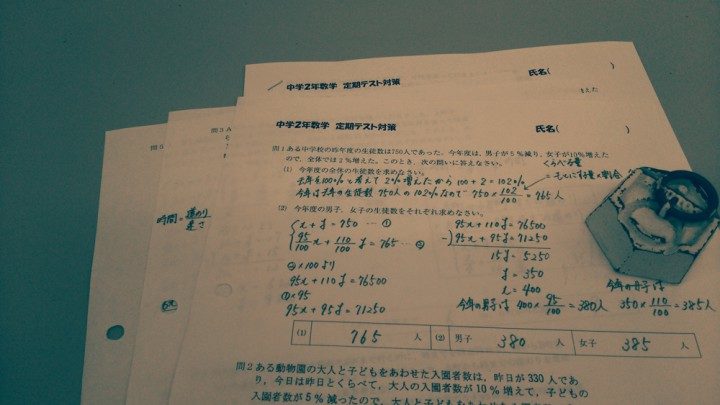 中学2年数学 定期テスト対策 氏名( )
また
中学2年数学 定期テスト対策 氏名( )
問1 ある中学校の昨年度の生徒数は750人であった。今年度は、男子が5%減り、女子が10%増えた
ので、全体では2%増えた。このとき、次の問いに答えなさい。
くらべる量
(1) 今年度の全体の生徒数を求めなさい。
去年を100%と考えて 2%増えたから 100+2=102%
もとにする量×割合
今年は去年の生徒数 750人の102%なので 750×102/100=765人
(2) 今年度の男子、女子の生徒数をそれぞれ求めなさい。
x+y=750 … ①
95/100x+110/100y=765 … ②
②×100より
95x+110y=76500
①×95
95x+95y=71250
95x+110y=76500
-)95x+95y=71250
15y=5250
y=350
x=400
今年の男子は 400×95/100=380人
今年の女子は
350×110/100=385人
(1) 765 人 (2) 男子 380 人 女子 385 人
問2 ある動物園の大人と子どもをあわせた入園者数は、昨日が330人であ
り、今日は昨日とくらべて、大人の入園者数が10%増えて、子どもの
入園者数が5%減ったので、大人と子どもをあわせた
問3
時間=道のり/速さ
問5